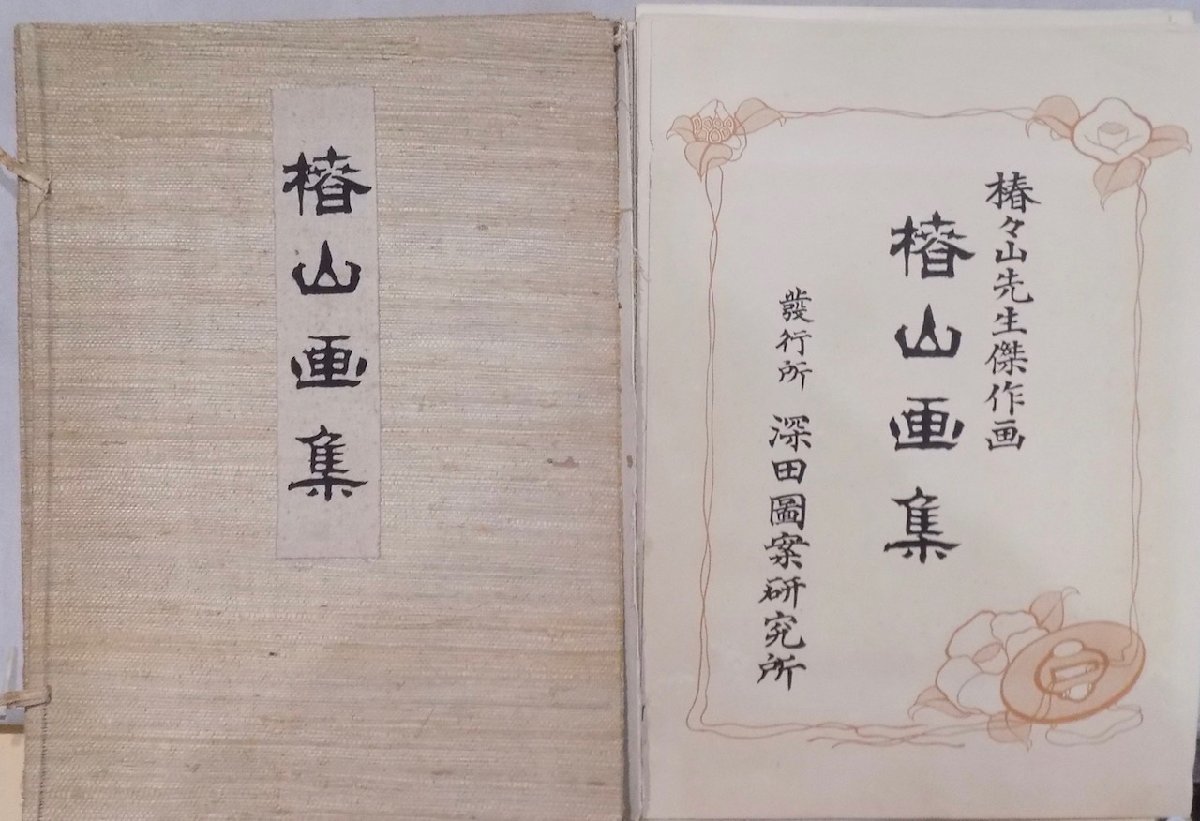 椿山画集
椿々山先生傑作画
椿山画集
發行所 深田圖案研究所